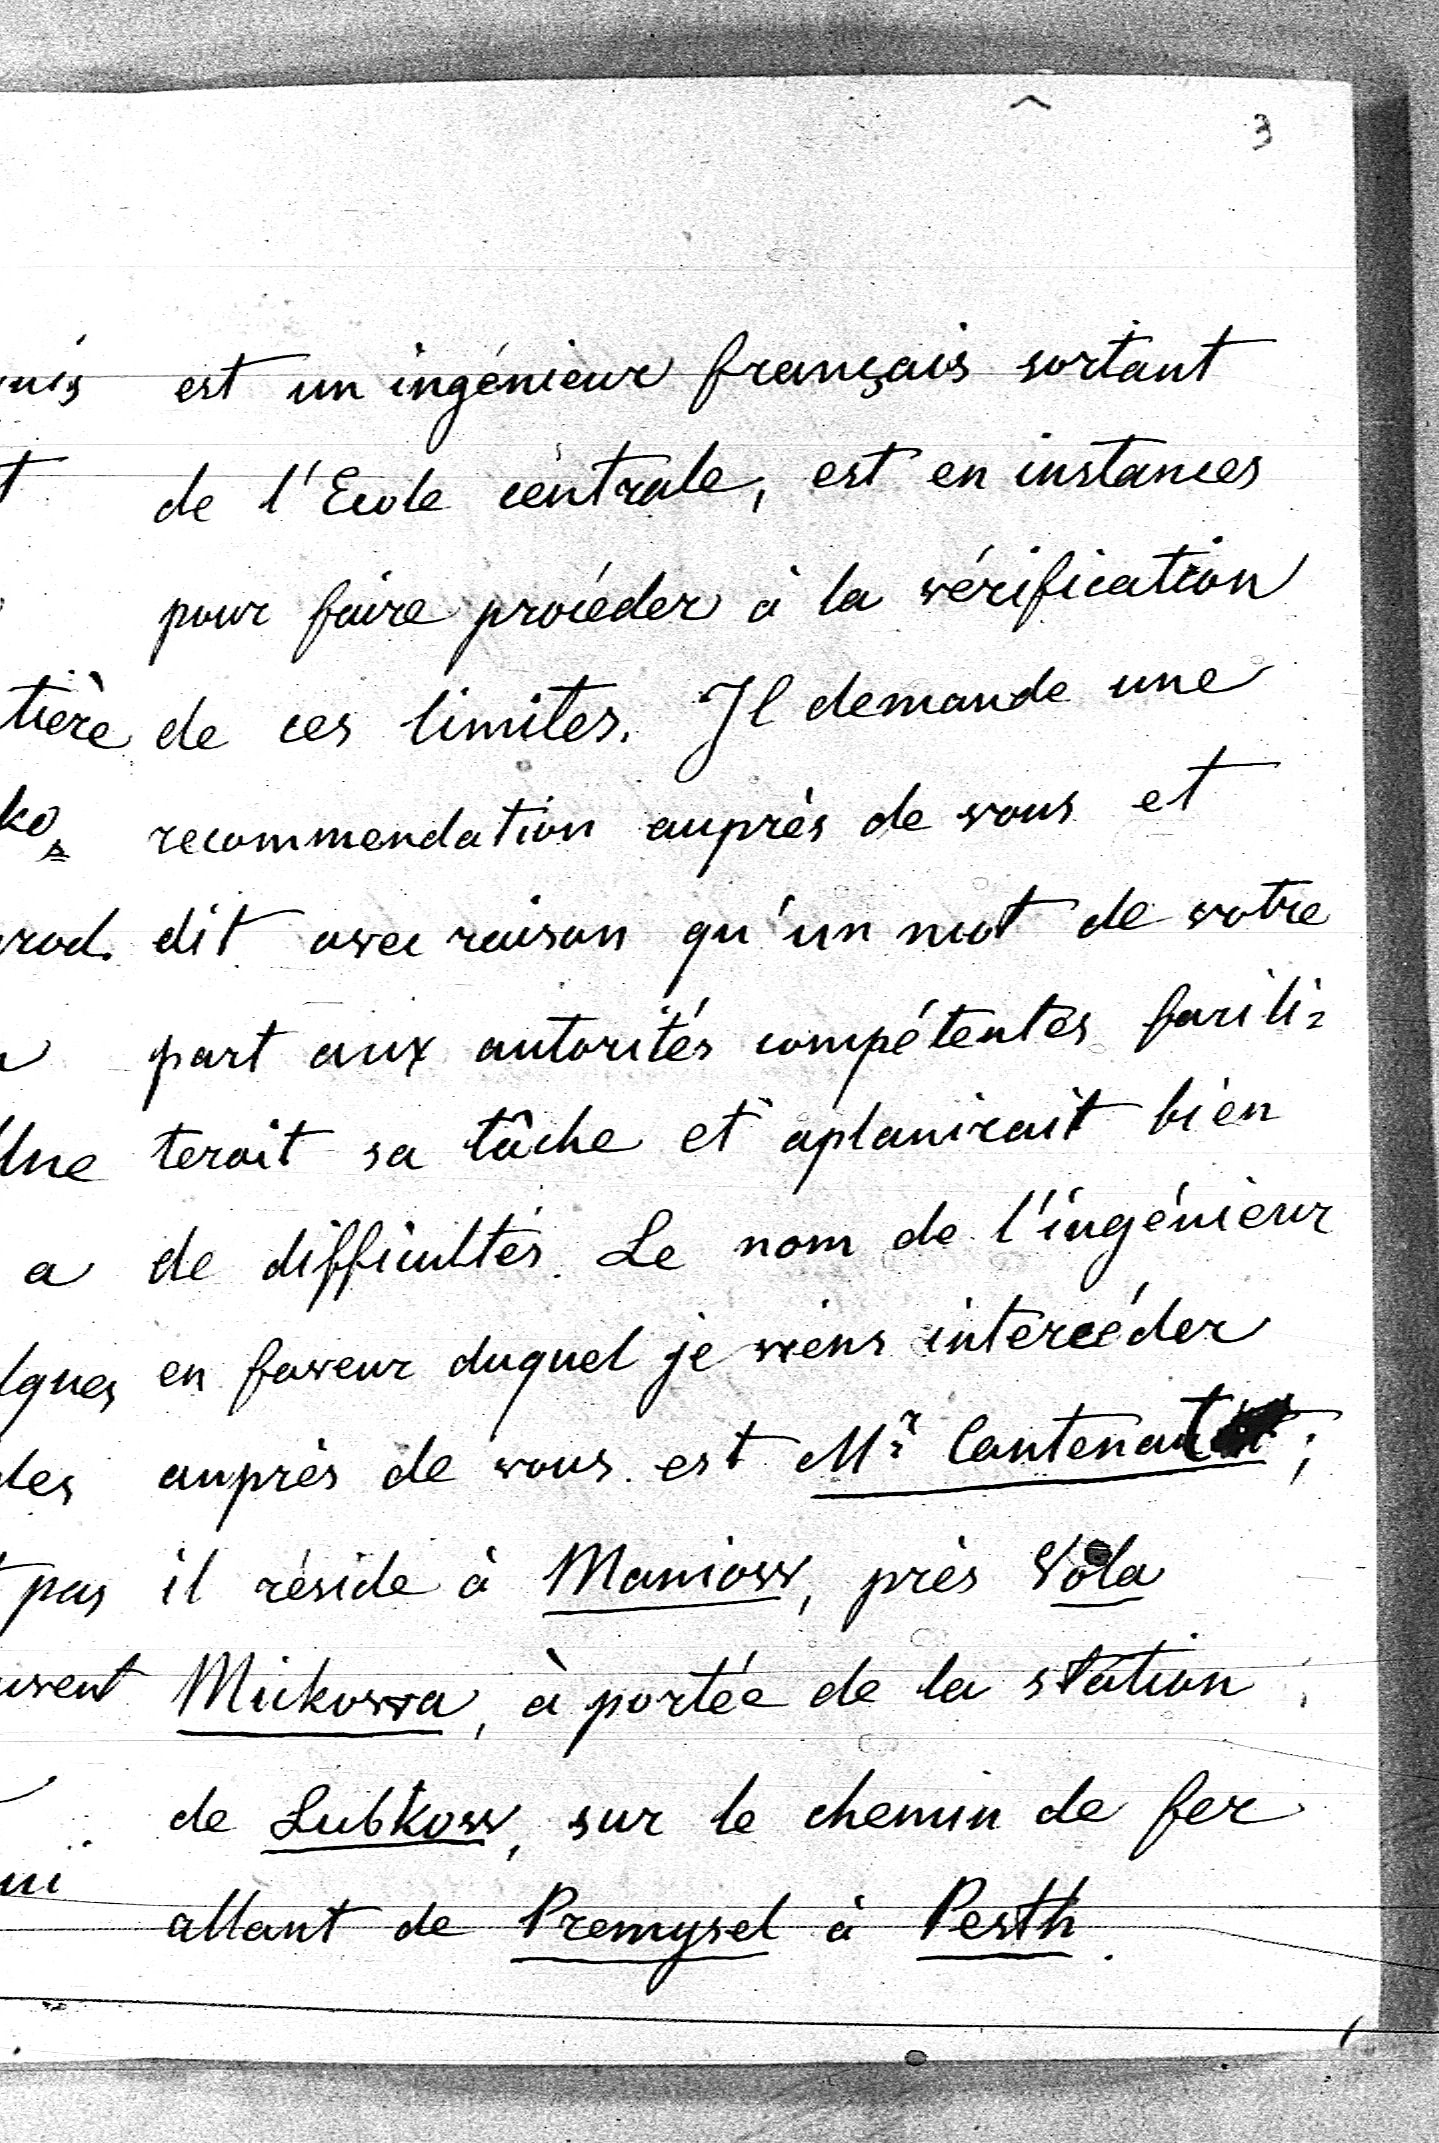 3
est un ingénieur français sortant
de l'Ecole centrale, est en instances
pour faire procéder à la vérification
de ces limites. Il demande une
recommendation auprès de vous et
dit avec raison qu'un mot de votre
part aux autorités compétentes facili=
terait sa tâche et aplanirait bien
de difficultés. Le nom de l'ingénieur
en faveur duquel je viens intercéder
auprès de vous est Mr Cantenat ;
il réside à Maniow, près Vola
Mickowa, à portée de la station
de Lubkow, sur le chemin de fer
allant de Premysel à Pesth.
tière
ko
rod.
Une
a
lques
les
pas
uvent